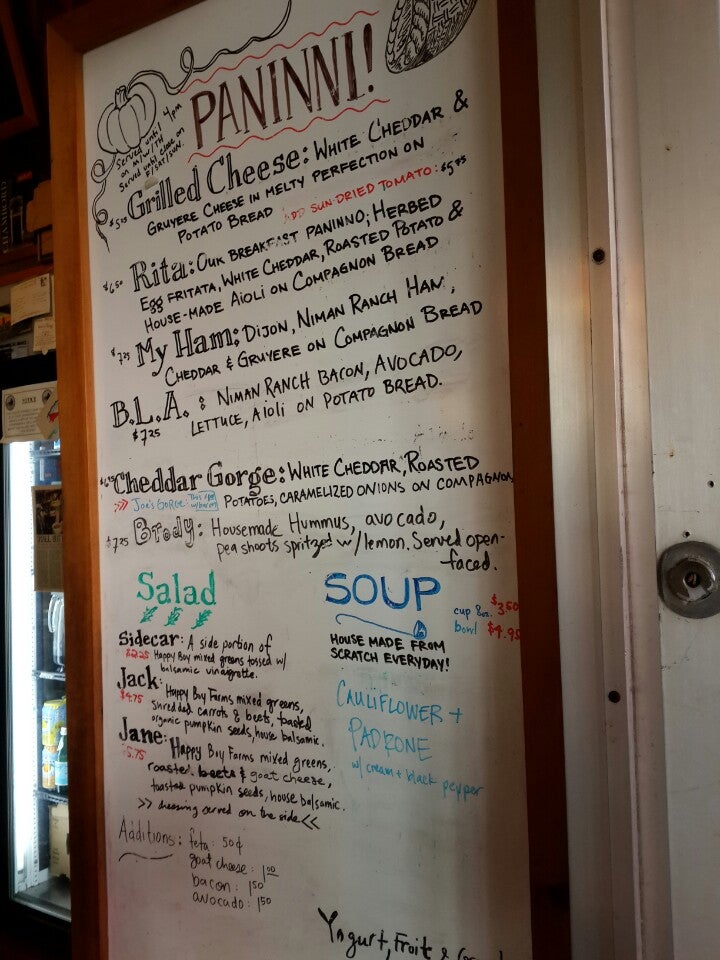 PANINNI!
Served until 4pm
on M/W/TH
Served until close on
F/SAT/SUN.
Grilled Cheese: WHITE CHEDDAR &
GRUYERE CHEESE IN MELTY PERFECTION ON
POTATO BREAD ADD SUN-DRIED TOMATO: $5.75
$6.50 Rita: OUR BREAKFAST PANINNO; HERBED
EGG FRITATA, WHITE CHEDDAR, ROASTED POTATO &
HOUSE-MADE AIOLI ON COMPAGNON BREAD
$7.25 My Ham; DIJON, NIMAN RANCH HAM,
CHEDDAR & GRUYERE ON COMPAGNON BREAD
B.L.A. : NIMAN RANCH BACON, AVOCADO,
$7.25 LETTUCE, AIOLI ON POTATO BREAD.
Cheddar Gorge: WHITE CHEDDAR, ROASTED
>>> JOE'S GORGE: POTATOES, CARAMELIZED ONIONS ON COMPAGNON
w/bacon
$7.25 Brody: Housemade Hummus, avocado,
pea shoots spritzed w/lemon. Served open-
faced.
Salad
Sidecar: A side portion of
Happy Boy mixed greens tossed w/
balsamic vinaigrette.
Jack:
$4.75 Happy Boy Farms mixed greens,
shredded carrots & beets, toasted
organic pumpkin seeds, house balsamic.
Jane:
$5.75 Happy Boy Farms mixed greens,
roasted beets & goat cheese,
toasted pumpkin seeds, house balsamic.
>> dressing served on the side <<
Additions: feta: 50¢
goat cheese: 1.00
bacon: 1.50
avocado: 1.50
SOUP
cup 8oz. $3.50
bowl $4.95
HOUSE MADE FROM
SCRATCH EVERYDAY!
CAULIFLOWER +
PADRONE
w/ cream + black pepper
Yogurt, Fruit &